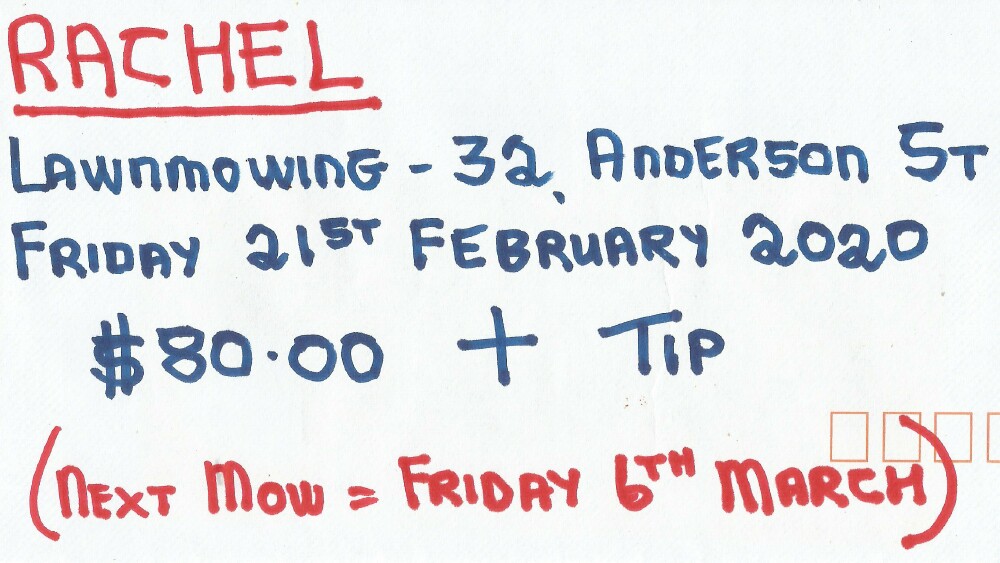 RACHEL
LAWNMOWING - 32, ANDERSON ST
FRIDAY 21ST FEBRUARY 2020
$80.00 + TIP
(NEXT MOW = FRIDAY 6TH MARCH)